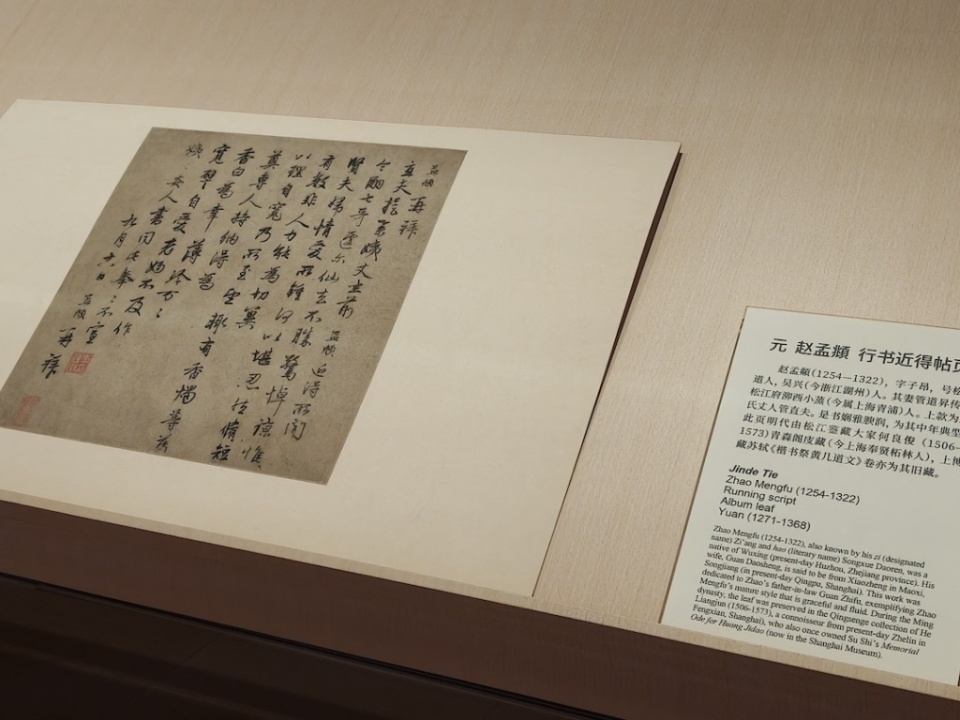 孟頫再拜
立夫提舉姨丈坐前孟頫近得所聞
令嗣七哥遽尔仙去不勝驚悼諒惟
賢夫婦情愛所鍾何以堪忍然脩短
有數非人力能為切冀
以理自寬乃所至望輒有香燭等為
奠專人持納得為
香白為幸薄冷万万
寬自愛老婦不及作
夫人書同此奉不宣
九月十六日孟頫再拜
元 赵孟頫 行书近得帖页
赵孟頫(1254—1322),字子昂,号松
道人,吴兴(今浙江湖州)人。其妻管道昇传
松江府泖西小蒸(今属上海青浦)人。上款为
氏丈人管直夫。是书娴雅腴润,为其中年典型
此页明代由松江鉴藏大家何良俊(1506—
1573)青森阁庋藏(今上海奉贤柘林人),上博
藏苏轼《楷书祭黄几道文》卷亦为其旧藏。
Jinde Tie
Zhao Mengfu (1254-1322)
Running script
Album leaf
Yuan (1271-1368)
Zhao Mengfu (1254-1322), also known by his zi (designated
name) Zi'ang and hao (literary name) Songxue Daoren, was a
native of Wuxing (present-day Huzhou, Zhejiang province). His
wife, Guan Daosheng, is said to be from Xiaozheng in Maoxi,
Songjiang (in present-day Qingpu, Shanghai). This work was
dedicated to Zhao's father-in-law Guan Zhifu, exemplifying Zhao
Mengfu's mature style that is graceful and fluid. During the Ming
dynasty, the leaf was preserved in the Qingsenge collection of He
Liangjun (1506-1573), a connoisseur from present-day Zhelin in
Fengxian, Shanghai), who also once owned Su Shi's Memorial
Ode for Huang Jidao (now in the Shanghai Museum).